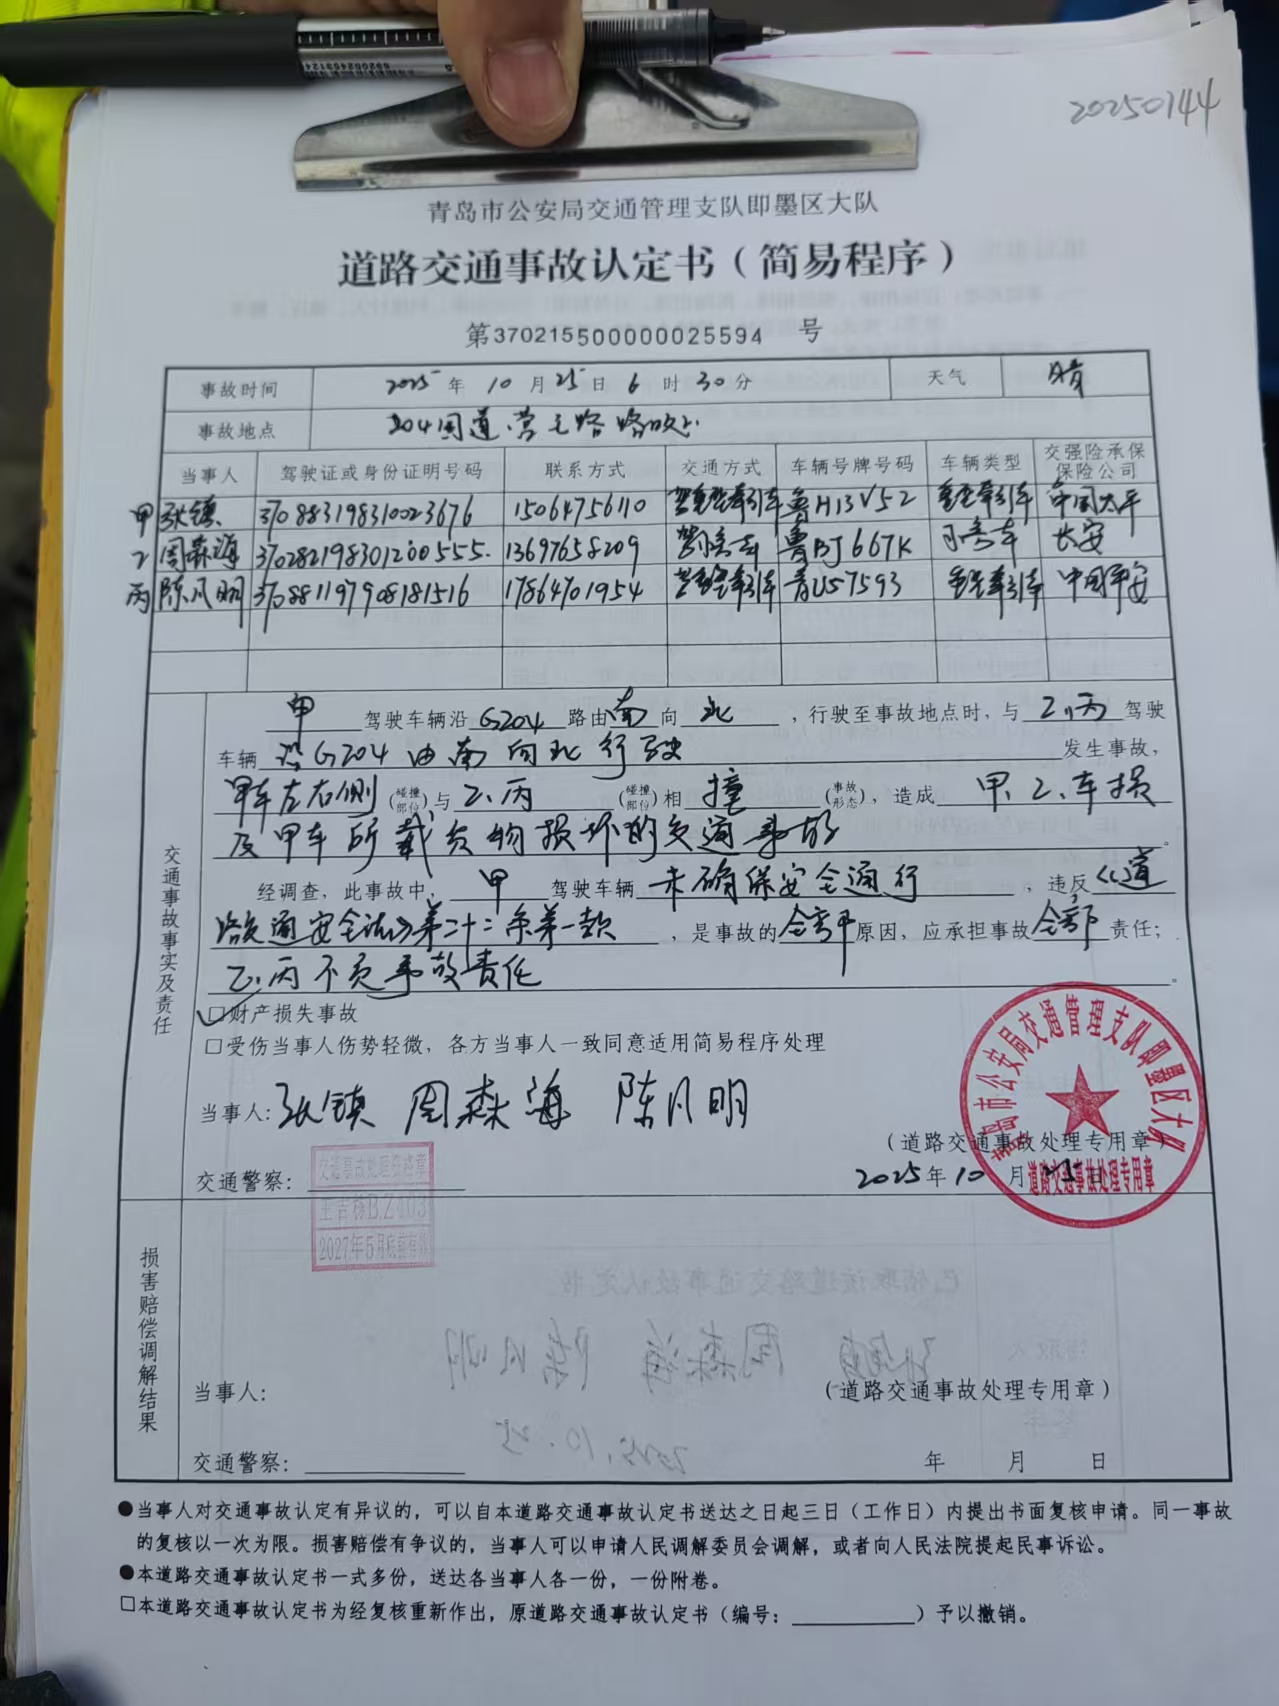 20250144
青岛市公安局交通管理支队即墨区大队
道路交通事故认定书（简易程序）
第370215500000025594 号
事故时间 2025年10月25日6时30分 天气 晴
事故地点 204国道、营 路路口
当事人 驾驶证或身份证明号码 联系方式 交通方式 车辆号牌号码 车辆类型 交强险承保保险公司
甲 张镇 370883198310023676 15064756110 驾重型牵引车 鲁H13V52 重型牵引车 中国太平
乙 周森海 370282198301200555. 13697658209 驾 鲁BJ667K 长安
丙 陈凡明 370881197908181516 17864701954 驾重型牵引车 青U57593 重型牵引车 中国平安
甲 驾驶车辆沿 G204 路由南向 北 ，行驶至事故地点时，与 乙、丙 驾驶
车辆 沿G204由南向北行驶 发生事故，
甲车左右侧（碰撞部位）与 乙、丙 （碰撞部位）相 撞 （事故形态），造成 甲、乙、车损
及甲车所载货物损坏的交通事故 。
经调查，此事故中， 甲 驾驶车辆 未确保安全通行 ，违反《道
路交通安全法》第二十二条第一款 ，是事故的全部原因，应承担事故全部责任；
乙、丙不负事故责任 。
交通事故事实及责任
☑财产损失事故
□受伤当事人伤势轻微，各方当事人一致同意适用简易程序处理
当事人: 张镇 周森海 陈凡明
（道路交通事故处理专用章）
青岛市公安局交通管理支队即墨区大队
道路交通事故处理专用章
交通警察： 2025年10月25日
交通事故处理资格章
B.Z403
2027年5月底前有效
损害赔偿调解结果
当事人: （道路交通事故处理专用章）
交通警察： 年 月 日
●当事人对交通事故认定有异议的，可以自本道路交通事故认定书送达之日起三日（工作日）内提出书面复核申请。同一事故
的复核以一次为限。损害赔偿有争议的，当事人可以申请人民调解委员会调解，或者向人民法院提起民事诉讼。
●本道路交通事故认定书一式多份，送达各当事人各一份，一份附卷。
□本道路交通事故认定书为经复核重新作出，原道路交通事故认定书（编号：__________）予以撤销。